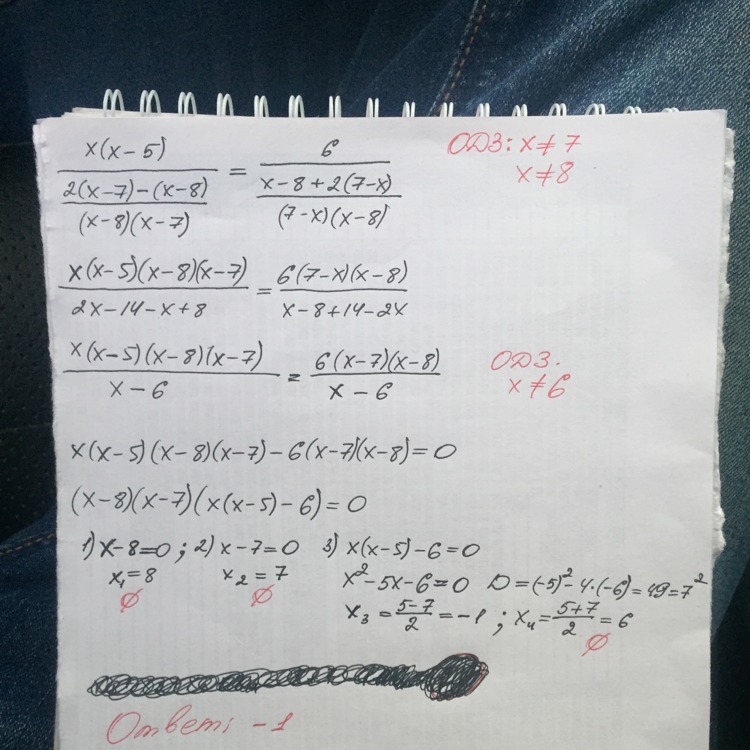 x(x-5) / ((2(x-7)-(x-8)) / ((x-8)(x-7))) = 6 / ((x-8+2(7-x)) / ((7-x)(x-8))) ОДЗ: x≠7
x≠8
x(x-5)(x-8)(x-7) / (2x-14-x+8) = 6(7-x)(x-8) / (x-8+14-2x)
x(x-5)(x-8)(x-7) / (x-6) = 6(x-7)(x-8) / (x-6) ОДЗ.
x≠6
x(x-5)(x-8)(x-7)-6(x-7)(x-8)=0
(x-8)(x-7)(x(x-5)-6)=0
1) x-8=0; 2) x-7=0 3) x(x-5)-6=0
x₁=8 x₂=7 x²-5x-6=0 D=(-5)²-4·(-6)=49=7²
∅ ∅ x₃=(5-7)/2=-1; x₄=(5+7)/2=6
∅
Ответ: -1